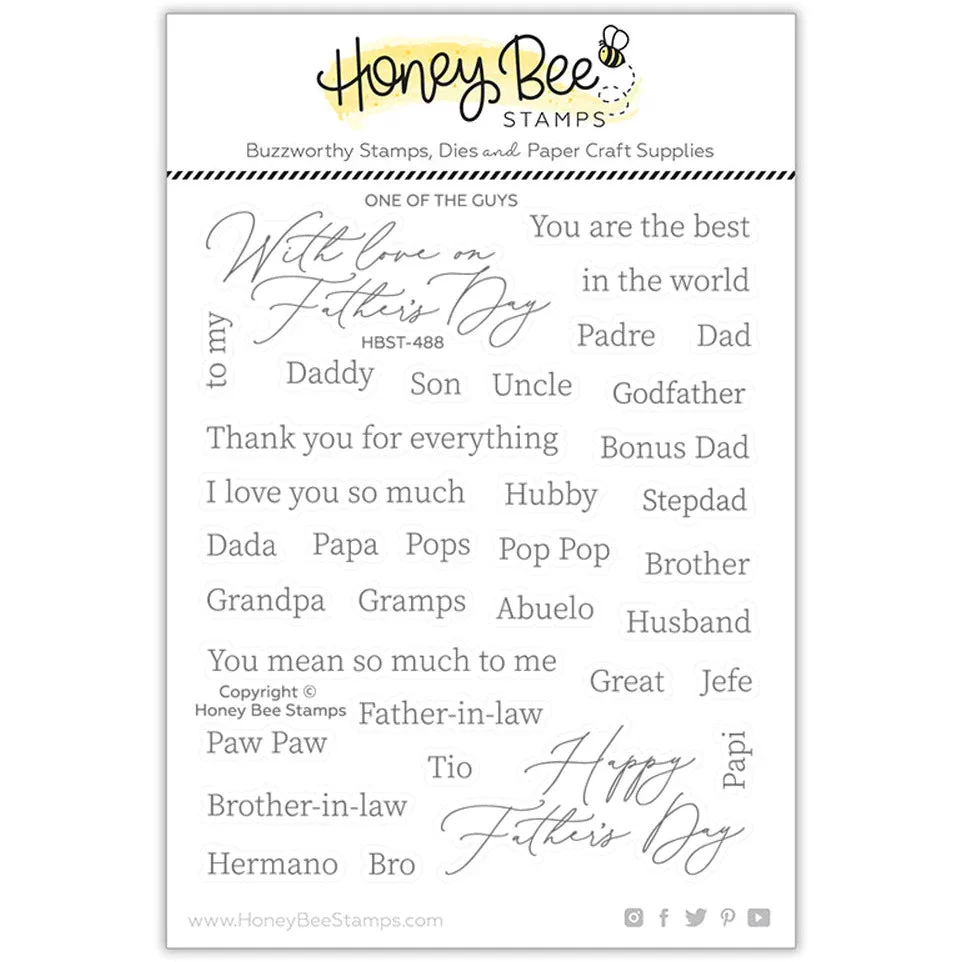 Honey Bee
STAMPS
Buzzworthy Stamps, Dies and Paper Craft Supplies
ONE OF THE GUYS
With love on
Father's Day
HBST-488
You are the best
in the world
to my
Padre Dad
Daddy Son Uncle Godfather
Thank you for everything Bonus Dad
I love you so much Hubby Stepdad
Dada Papa Pops Pop Pop Brother
Grandpa Gramps Abuelo Husband
You mean so much to me Great Jefe
Copyright ©
Honey Bee Stamps
Father-in-law
Paw Paw Tio
Papi
Happy
Father's Day
Brother-in-law
Hermano Bro
www.HoneyBeeStamps.com